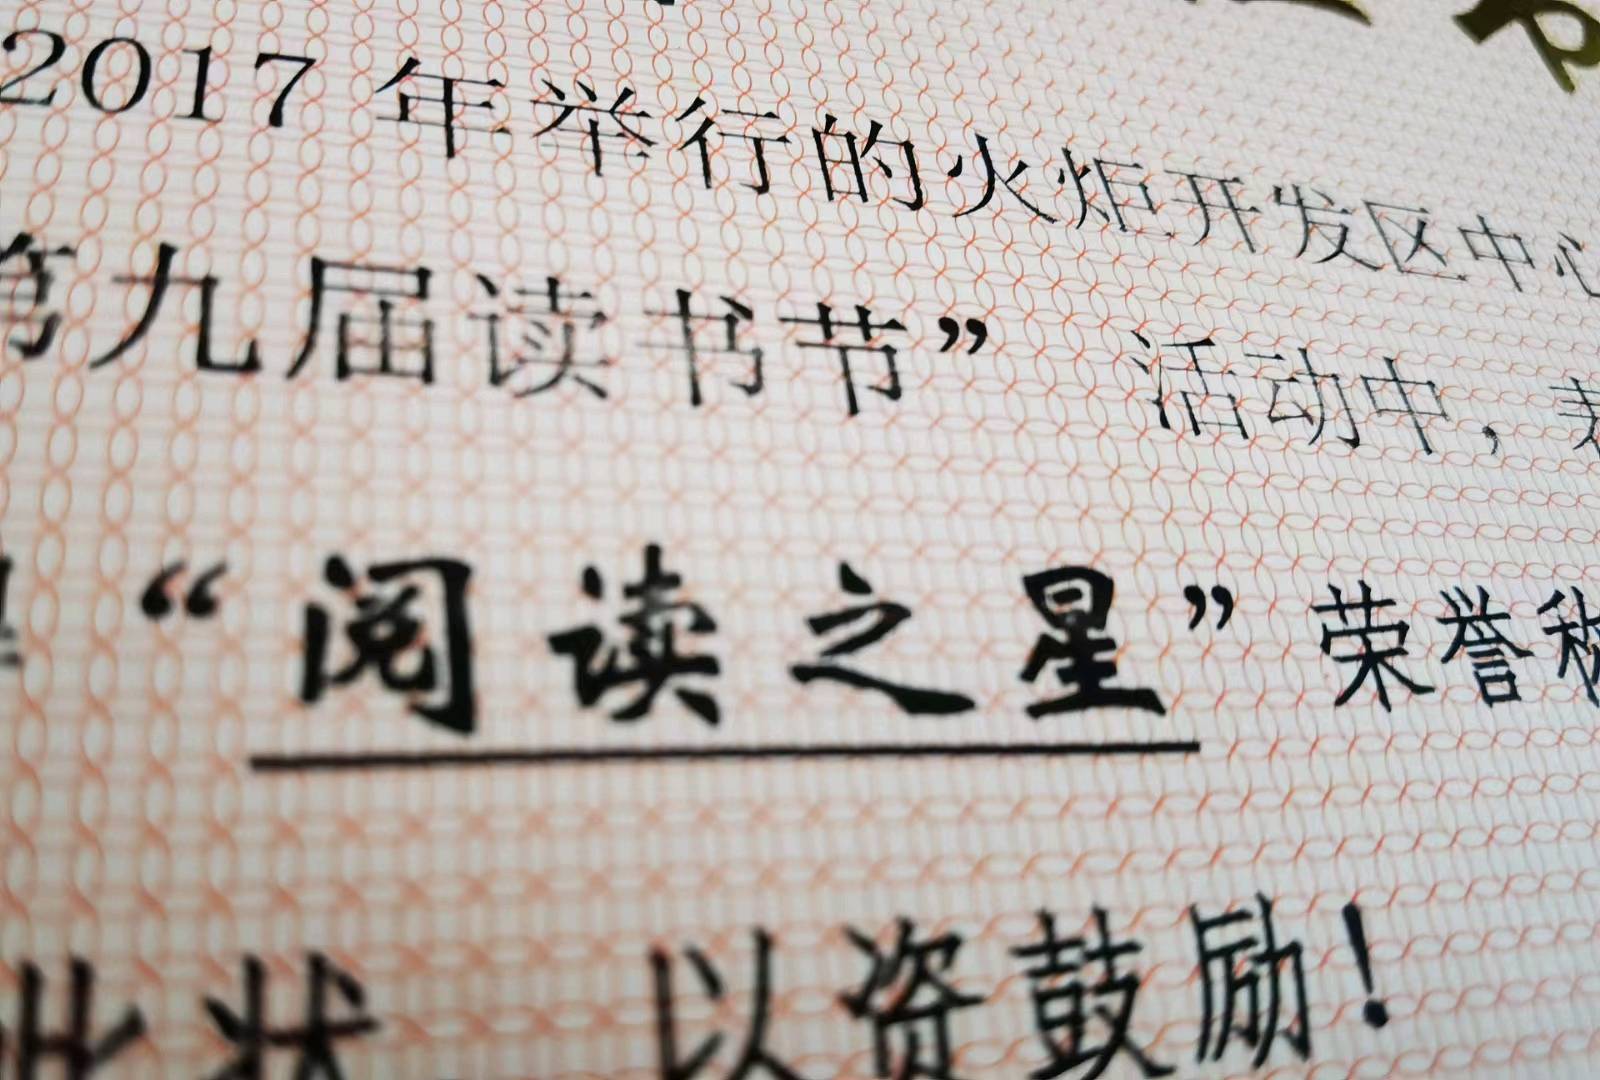 2017 年举行的火炬开发区中心
第九届读书节” 活动中，表
“阅读之星”荣誉称
此状 以资鼓励！